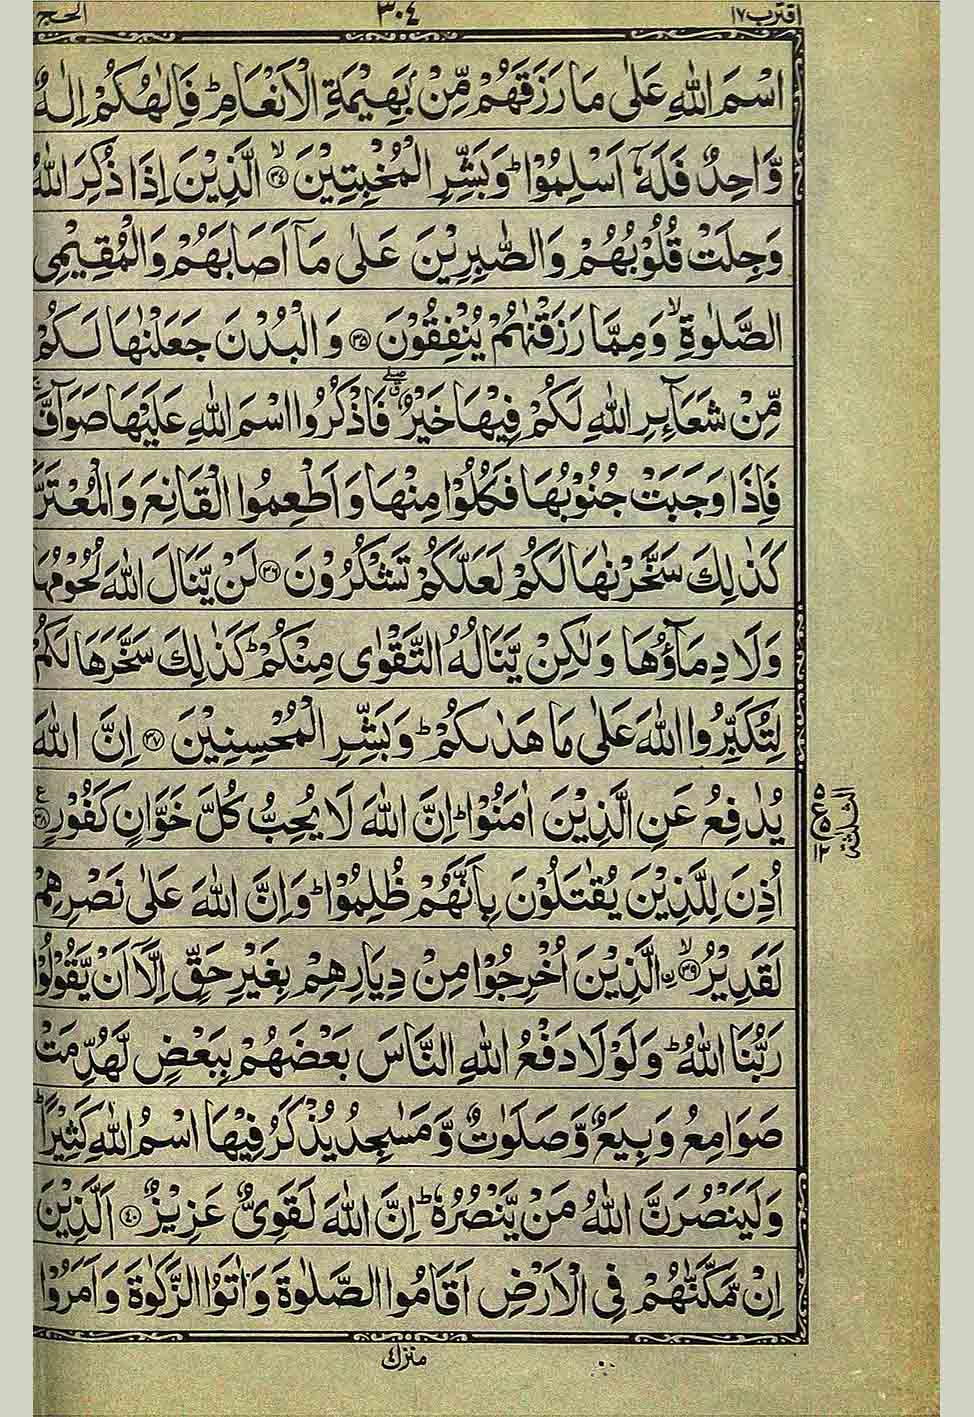 اقترب ١٧ ٣٠٤ الحج
اسْمَ اللّٰهِ عَلٰى مَا رَزَقَهُمْ مِّنْۢ بَهِيْمَةِ الْاَنْعَامِ ؕ فَاِلٰهُكُمْ اِلٰهٌ
وَّاحِدٌ فَلَهٗۤ اَسْلِمُوْا ؕ وَبَشِّرِ الْمُخْبِتِيْنَ ۙ‏﴿۳۴﴾ الَّذِيْنَ اِذَا ذُكِرَ اللّٰهُ
وَجِلَتْ قُلُوْبُهُمْ وَالصّٰبِرِيْنَ عَلٰى مَاۤ اَصَابَهُمْ وَالْمُقِيْمِى
الصَّلٰوةِ ۙ وَمِمَّا رَزَقْنٰهُمْ يُنْفِقُوْنَ ﴿۳۵﴾ وَالْبُدْنَ جَعَلْنٰهَا لَكُمْ
مِّنْ شَعَآئِرِ اللّٰهِ لَكُمْ فِيْهَا خَيْرٌ ۖۗ فَاذْكُرُوا اسْمَ اللّٰهِ عَلَيْهَا صَوَآفَّ ۚ
فَاِذَا وَجَبَتْ جُنُوْبُهَا فَكُلُوْا مِنْهَا وَاَطْعِمُوا الْقَانِعَ وَالْمُعْتَرَّ ؕ
كَذٰلِكَ سَخَّرْنٰهَا لَكُمْ لَعَلَّكُمْ تَشْكُرُوْنَ ﴿۳۶﴾ لَنْ يَّنَالَ اللّٰهَ لُحُوْمُهَا
وَلَا دِمَآؤُهَا وَلٰكِنْ يَّنَالُهُ التَّقْوٰى مِنْكُمْ ؕ كَذٰلِكَ سَخَّرَهَا لَكُمْ
لِتُكَبِّرُوا اللّٰهَ عَلٰى مَا هَدٰٮكُمْ ؕ وَبَشِّرِ الْمُحْسِنِيْنَ ﴿۳۷﴾ اِنَّ اللّٰهَ
يُدٰفِعُ عَنِ الَّذِيْنَ اٰمَنُوْا ؕ اِنَّ اللّٰهَ لَا يُحِبُّ كُلَّ خَوَّانٍ كَفُوْرٍ ﴿۳۸﴾ ع
اُذِنَ لِلَّذِيْنَ يُقٰتَلُوْنَ بِاَنَّهُمْ ظُلِمُوْا ؕ وَاِنَّ اللّٰهَ عَلٰى نَصْرِهِمْ
لَقَدِيْرُ ۙ ﴿۳۹﴾ ۨالَّذِيْنَ اُخْرِجُوْا مِنْ دِيَارِهِمْ بِغَيْرِ حَقٍّ اِلَّاۤ اَنْ يَّقُوْلُوْا
رَبُّنَا اللّٰهُ ؕ وَلَوْلَا دَفْعُ اللّٰهِ النَّاسَ بَعْضَهُمْ بِبَعْضٍ لَّهُدِّمَتْ
صَوَامِعُ وَبِيَعٌ وَّصَلَوٰتٌ وَّمَسٰجِدُ يُذْكَرُ فِيْهَا اسْمُ اللّٰهِ كَثِيْرًا ؕ
وَلَيَنْصُرَنَّ اللّٰهُ مَنْ يَّنْصُرُهٗ ؕ اِنَّ اللّٰهَ لَقَوِىٌّ عَزِيْزٌ ﴿۴۰﴾ اَلَّذِيْنَ
اِنْ مَّكَّنّٰهُمْ فِى الْاَرْضِ اَقَامُوا الصَّلٰوةَ وَاٰتَوُا الزَّكٰوةَ وَاَمَرُوْا
منزل ٤